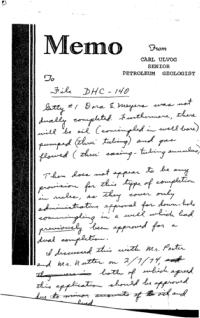 Memo
From
CARL ULVOG
SENIOR
PETROLEUM GEOLOGIST
To
File DHC-140
Getty #1 Dora E Meyers was not
dually completed. Furthermore, there
will be oil (comingled in well bore)
pumped (thru tubing) and gas
flowed (thru casing-tubing annulus)
There does not appear to be any
provision for this type of completion
in rules, as they cover only
administrative approval for down-hole
commingling in a well which had
previously been approved for a
dual completion.
I discussed this with Mr. Porter
and Mr. Nutter on 2/7/74, and
both of which agreed
this application should be approved
due to minor amounts of oil and